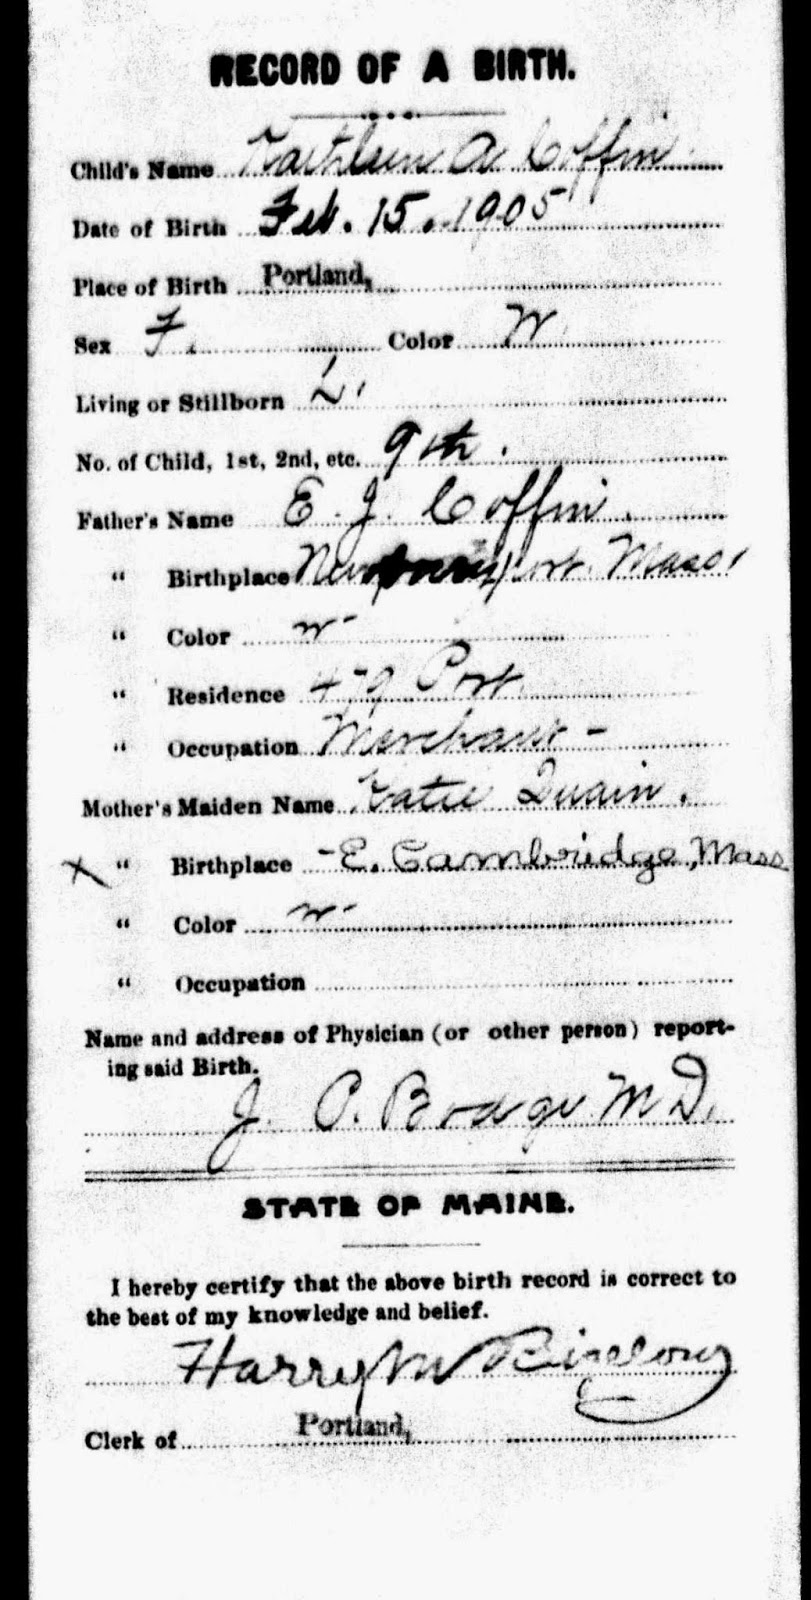 RECORD OF A BIRTH.
Child's Name Kathleen A Coffin
Date of Birth Feb. 15. 1905
Place of Birth Portland,
Sex F. Color W.
Living or Stillborn L.
No. of Child, 1st, 2nd, etc. 9th.
Father's Name E. J. Coffin.
" Birthplace Newburyport Mass.
" Color W-
" Residence 479 Port.
" Occupation Merchant -
Mother's Maiden Name Katie Quain.
X " Birthplace - E. Cambridge, Mass
" Color W-
" Occupation
Name and address of Physician (or other person) report-
ing said Birth.
J. P. M D.
STATE OF MAINE.
I hereby certify that the above birth record is correct to
the best of my knowledge and belief.
Harry M Bigelow
Clerk of Portland,